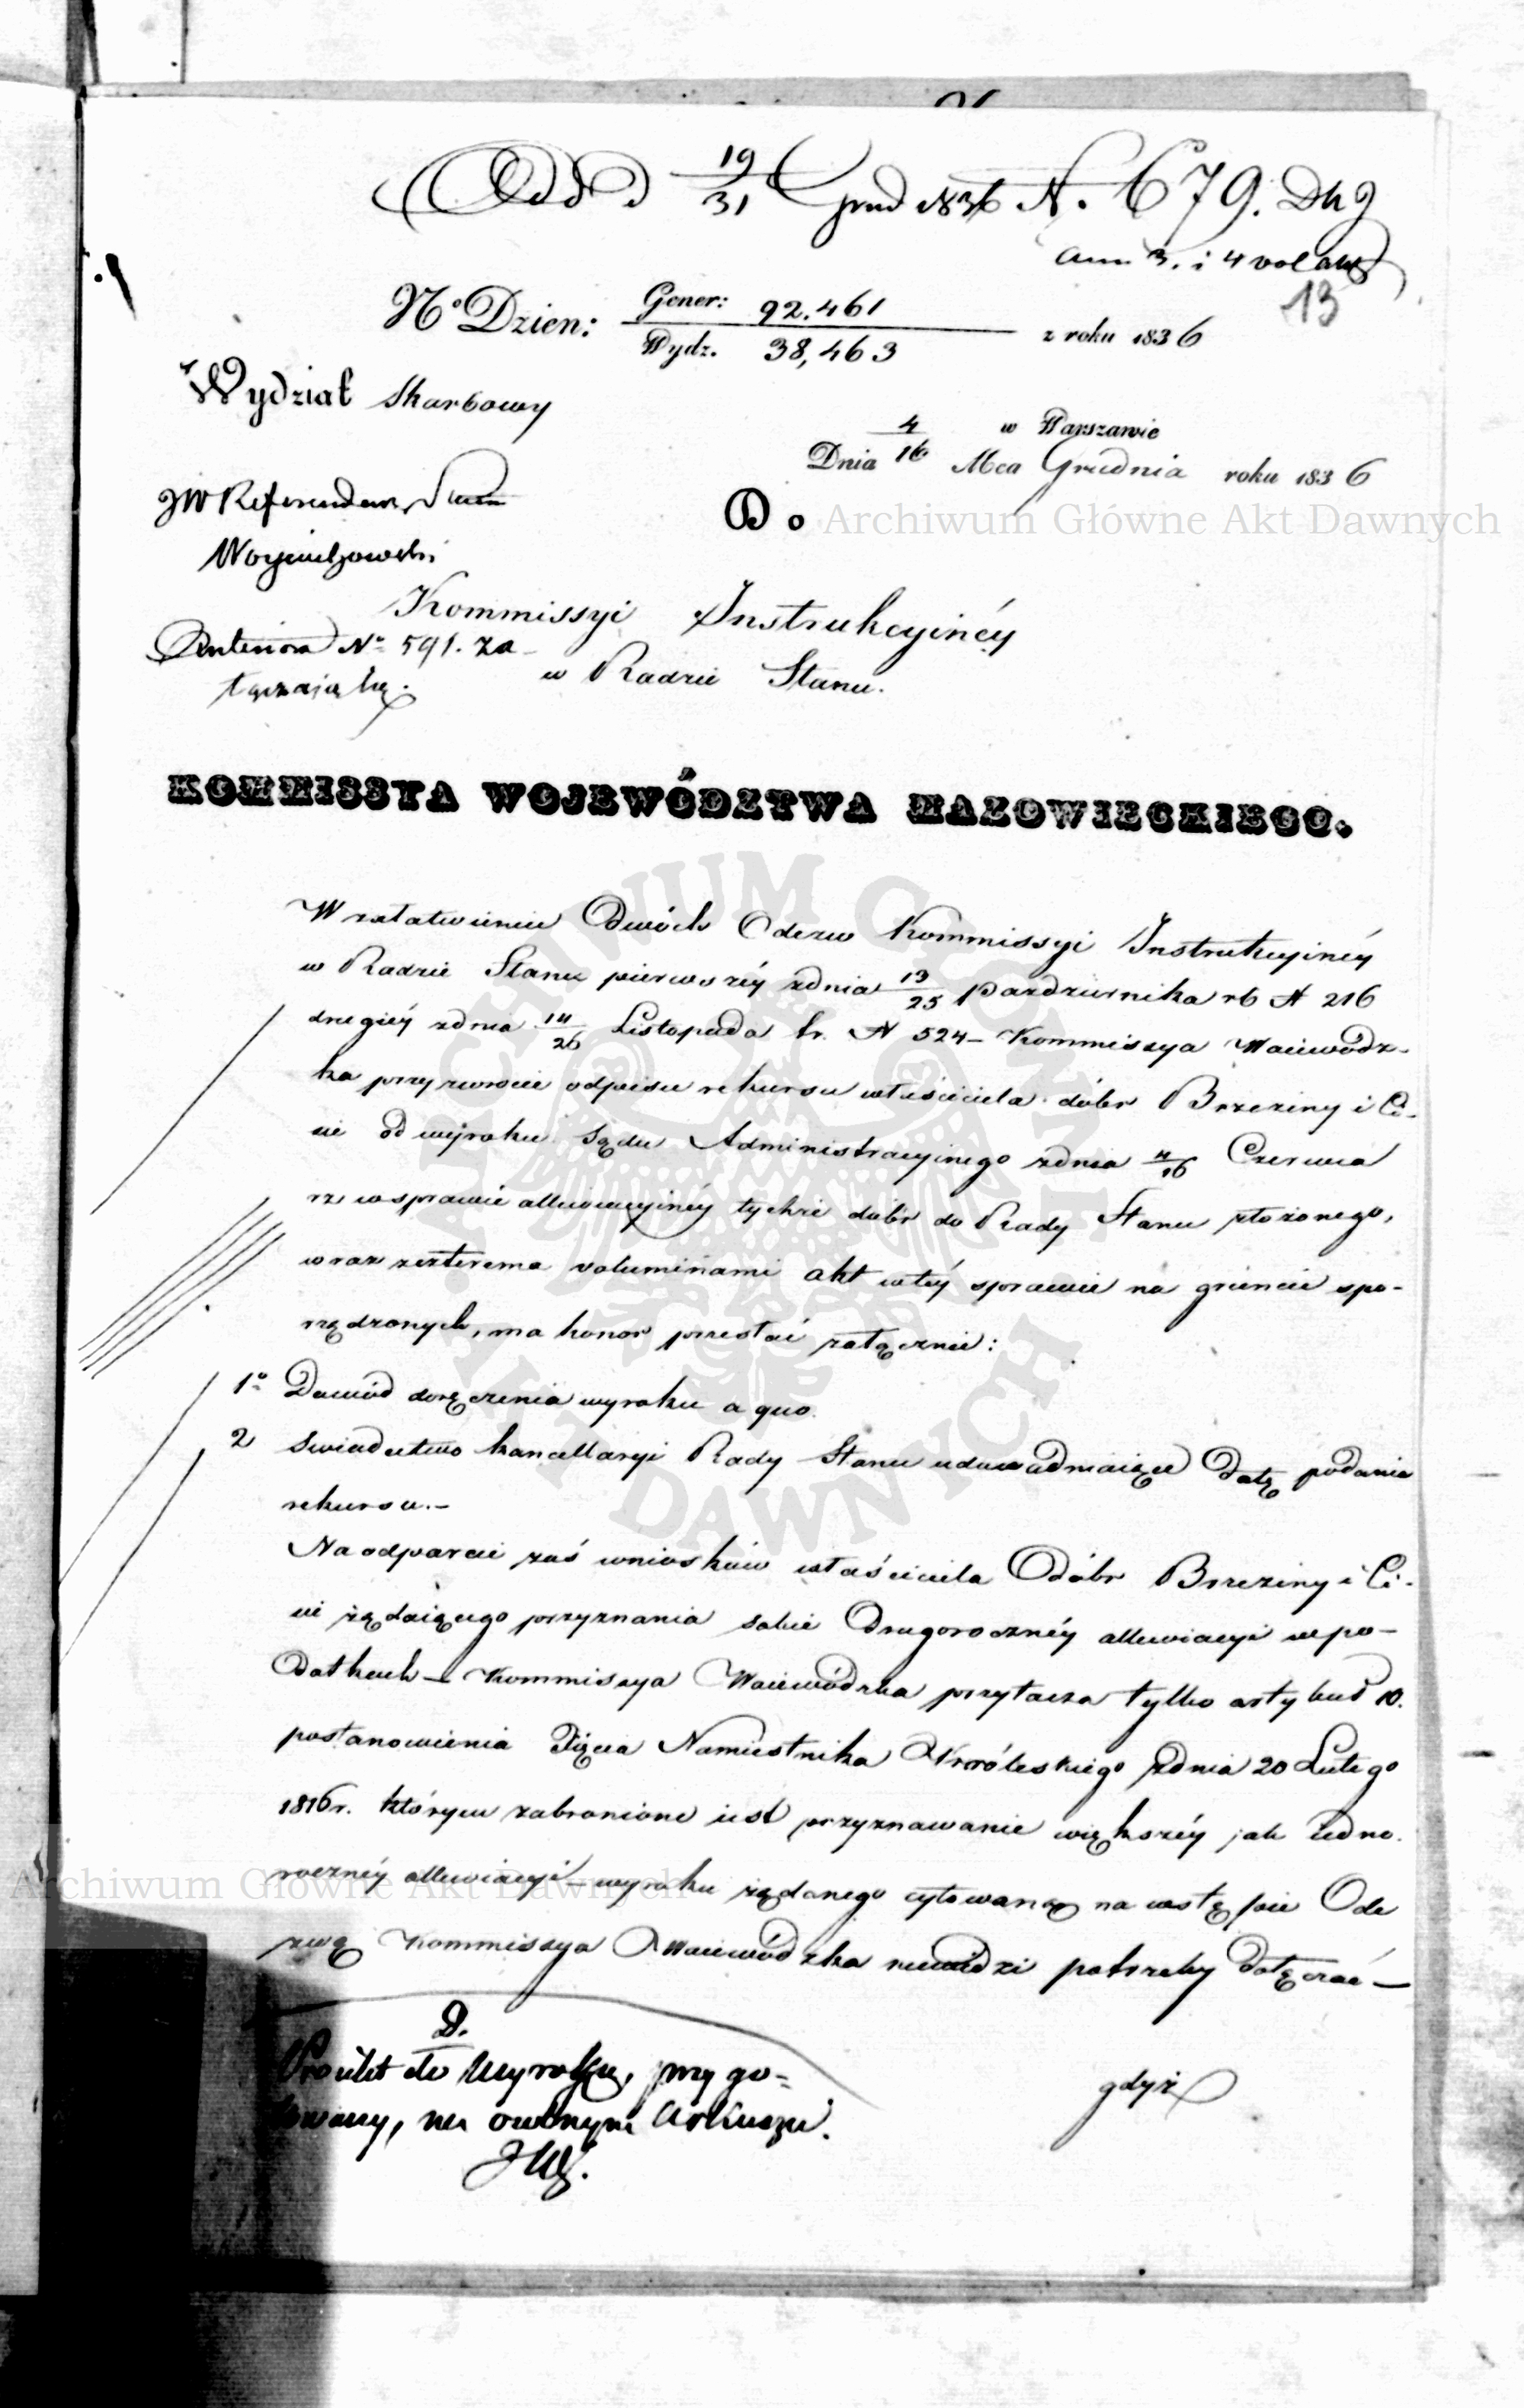 Odd 19/31 Grud 1836 N. 679. Dkg
ann 3. i 4 vol akt
13
No Dzien: Gener: 92.461 / Wydz. 38,463 z roku 1836
Wydział Skarbowy
w Warszawie
Dnia 4/16 Mca Grudnia roku 1836
JW Referendarz Stanu
Woyciechowski
Do
Archiwum Główne Akt Dawnych
Kommissyi Instrukcyinéy
Anteriora No 591. za-
w Radzie Stanu.
łączaią się.
KOMMISSYA WOJEWÓDZTWA MAZOWIECKIEGO.
W załatwieniu Dwóch Odezw Kommissyi Instrukcyinéy
w Radzie Stanu pierwszéy zdnia 13/25 Pazdziernika rb N 216
drugiéy zdnia 14/26 Listopada br. N 524 – Kommissya Woiewódz-
ka przy zwrocie odpisu rekursu właściciela dóbr Brzeziny i Ci-
sie od wyroku Sądu Administracyinego zdnia 4/16 Czerwca
rz w sprawie alleviacyinéy tychże dóbr do Rady Stanu złożonego,
wraz zczterema voluminami akt wtéy sprawie na gruncie spo-
rządzonych, ma honor przesłać załącznie:
1o Dowód doręczenia wyroku a quo.
2 Swiadectwo kancellaryi Rady Stanu udowadniaiące datę podania
rekursu.–
Na odparcie zaś wniosków właściciela Dóbr Brzeziny i Ci-
sie żądaiącego przyznania sobie Drugorocznéy alleviacyi w po-
datkach – Kommissya Woiewódzka przytacza tylko artykuł 10.
postanowienia Xięcia Namiestnika Królewskiego zdnia 20 Lutego
1816r. którym zabronione iest przyznawanie większéy jak iedno-
rocznéy alleviacyi – wyroku żądanego cytowaną na wstępie Ode
zwą Kommissya Woiewódzka niewidzi potrzeby dołączać –
Archiwum Główne Akt Dawnych
D.
Proiekt do Wyroku, przygo-
towany, na osobnym Arkuszu.
JW.
gdyż
ARCHIWUM GŁÓWNE AKT DAWNYCH